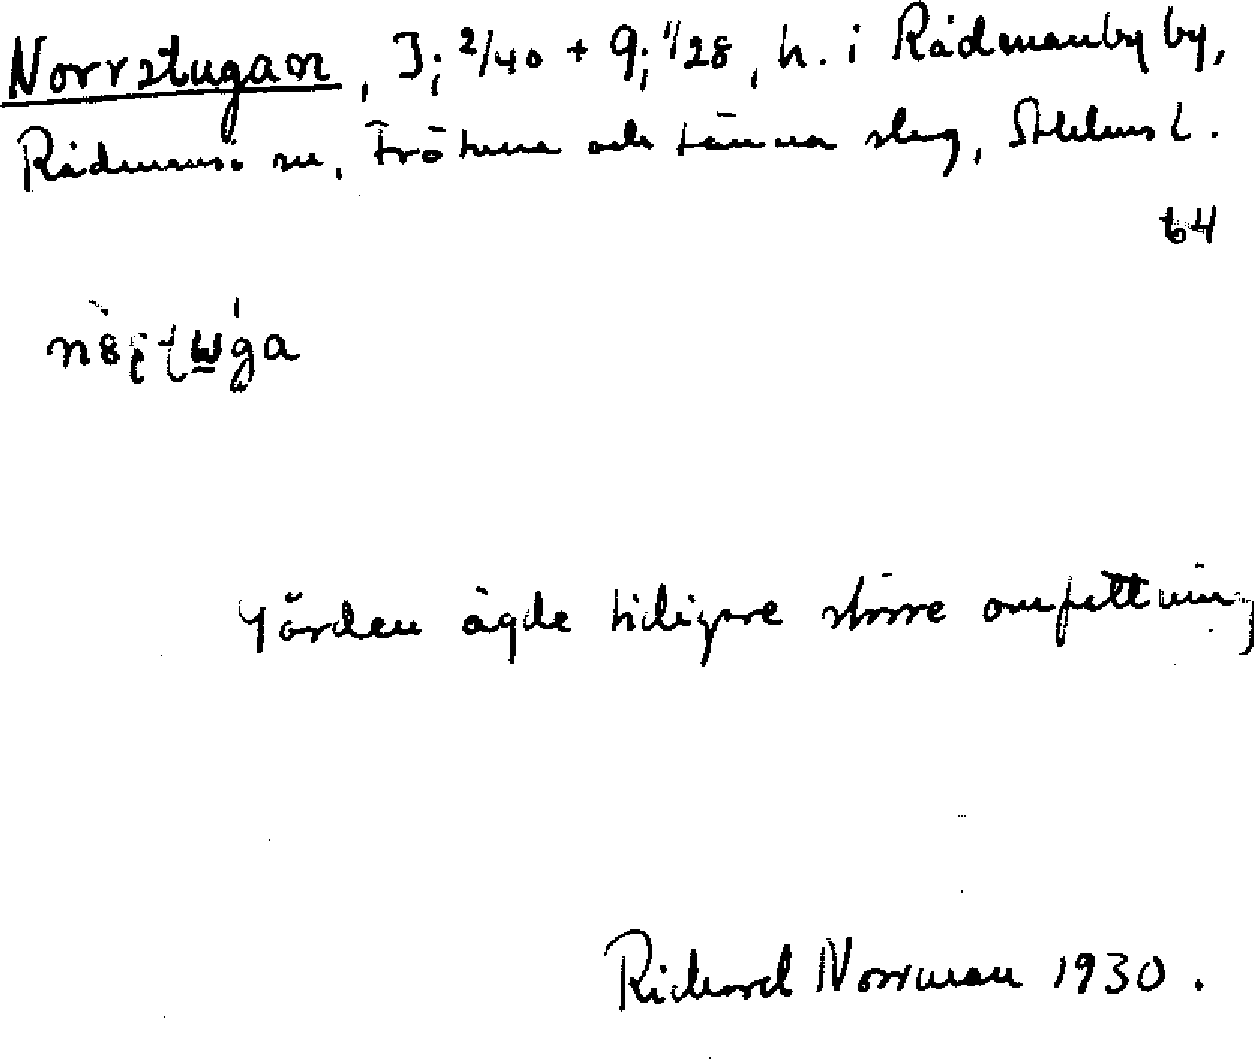 Norrstugan, J; 2/40 + 9; 1/28, h. i Rådmanby by,
Rådmansö sn, Frötuna och Länna slag, Sthlms l.
64
Gården ägde tidigare större omfattning
Richard Norrman 1930.